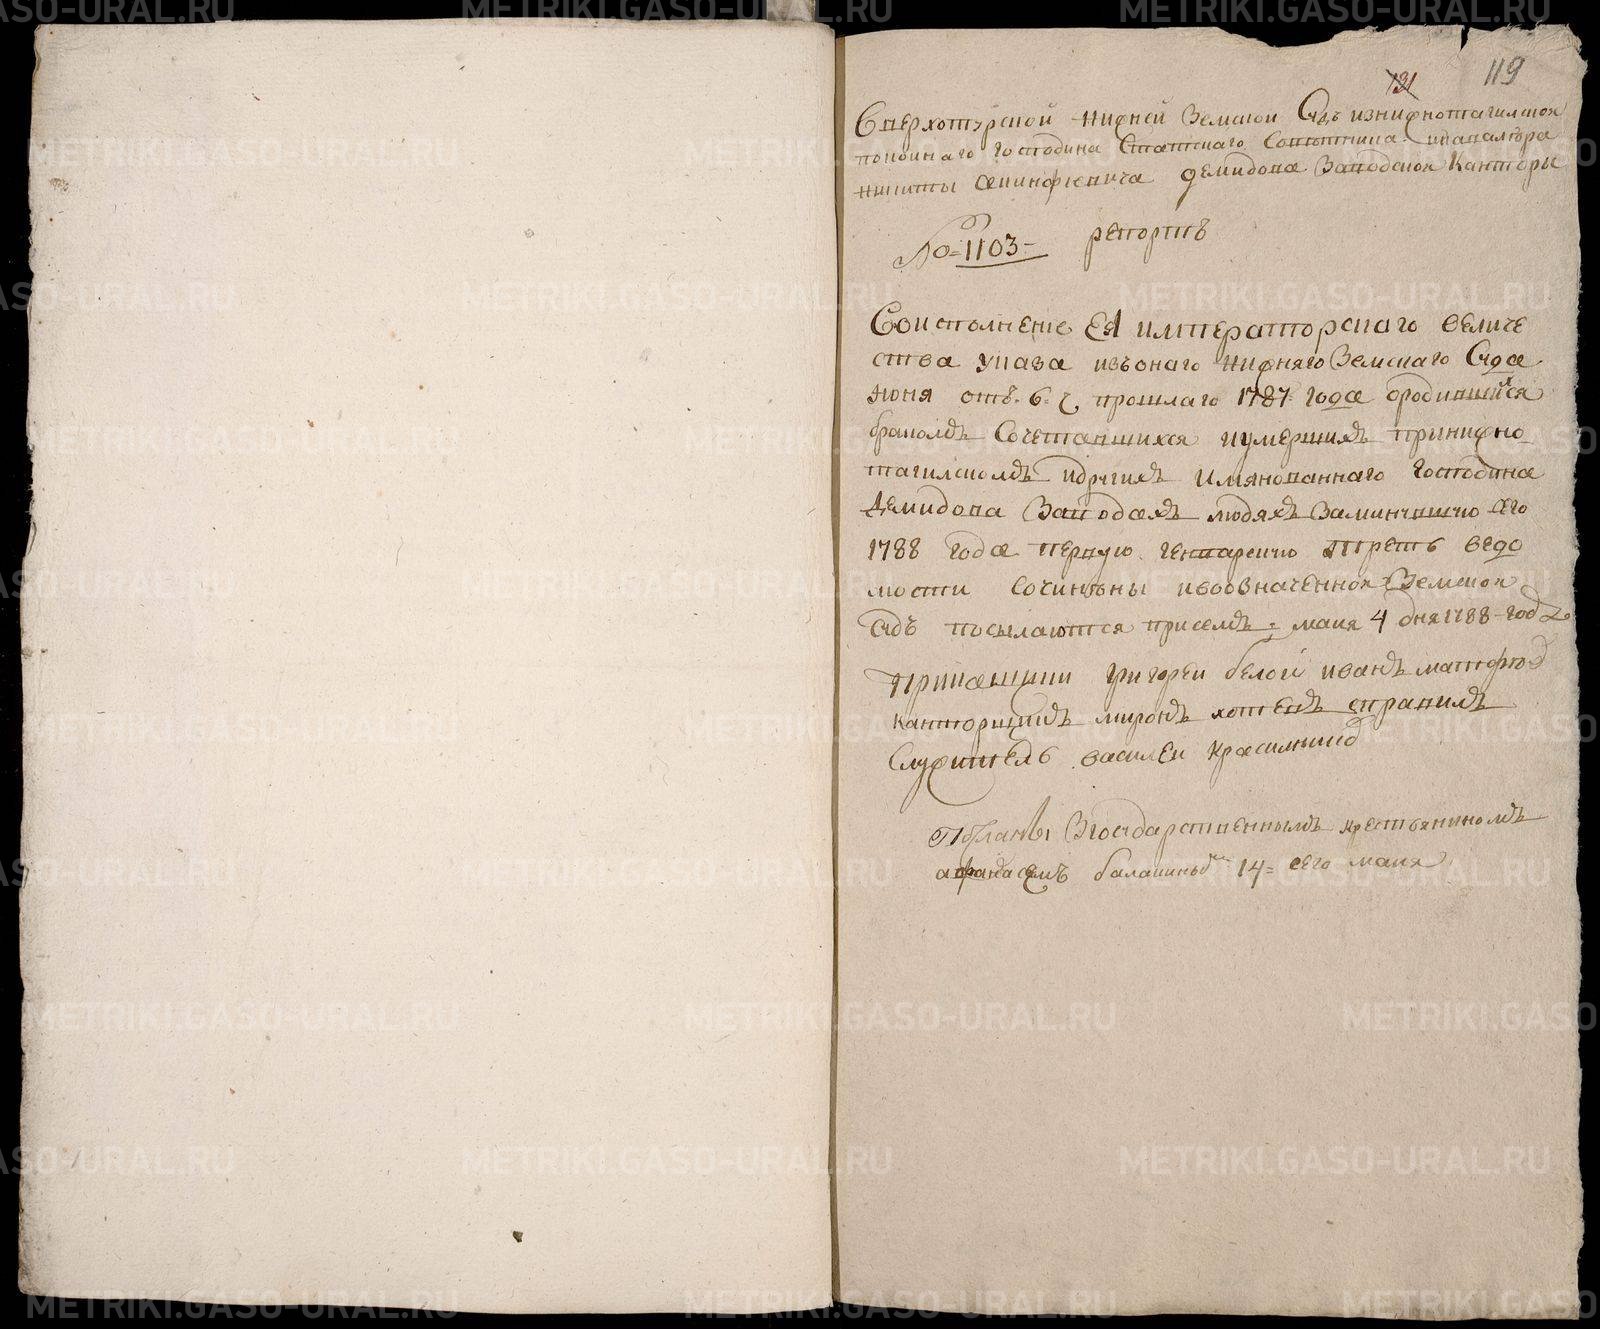 131 119
Вверхотурской нижней Земской Судъ изнижнотагилской
покойнаго господина Статскаго Советника икавалера
никиты акинфиевича демидова Заводской Канторы
No=1103= репортъ
Воисполнение ЕЯ императорскаго величе
ства указа изъонаго нижняго Земскаго Суда
июня отъ 6. ч прошлаго 1787 года ородившихся
бракомъ Сочетавшихся иумершихъ принижно
тагилскомъ идругихъ имянованнаго господина
Демидова Заводахъ людяхъ Заминувшую сего
1788 года первую генварскую треть ведо
мости сочинены ивоозначенной Земской
Судъ посылаются присемъ: маия 4 дня 1788 году
Прикащики григорей белой иванъ
канторщикъ миронъ хотевъ справилъ
Служитель василеи Красилников
Поданъ Згосударственнымъ крестьяниномъ
афанасемъ балакиным 14= сего маия
METRIKI.GASO-URAL.RU